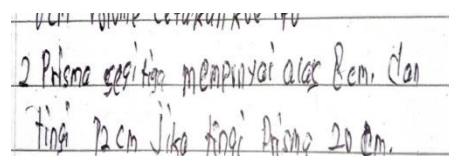 volume cetakan kue itu
2 Prisma segitiga mempunyai alas 8cm. dan
tingi 12 cm Jika tingi Prisma 20 cm.